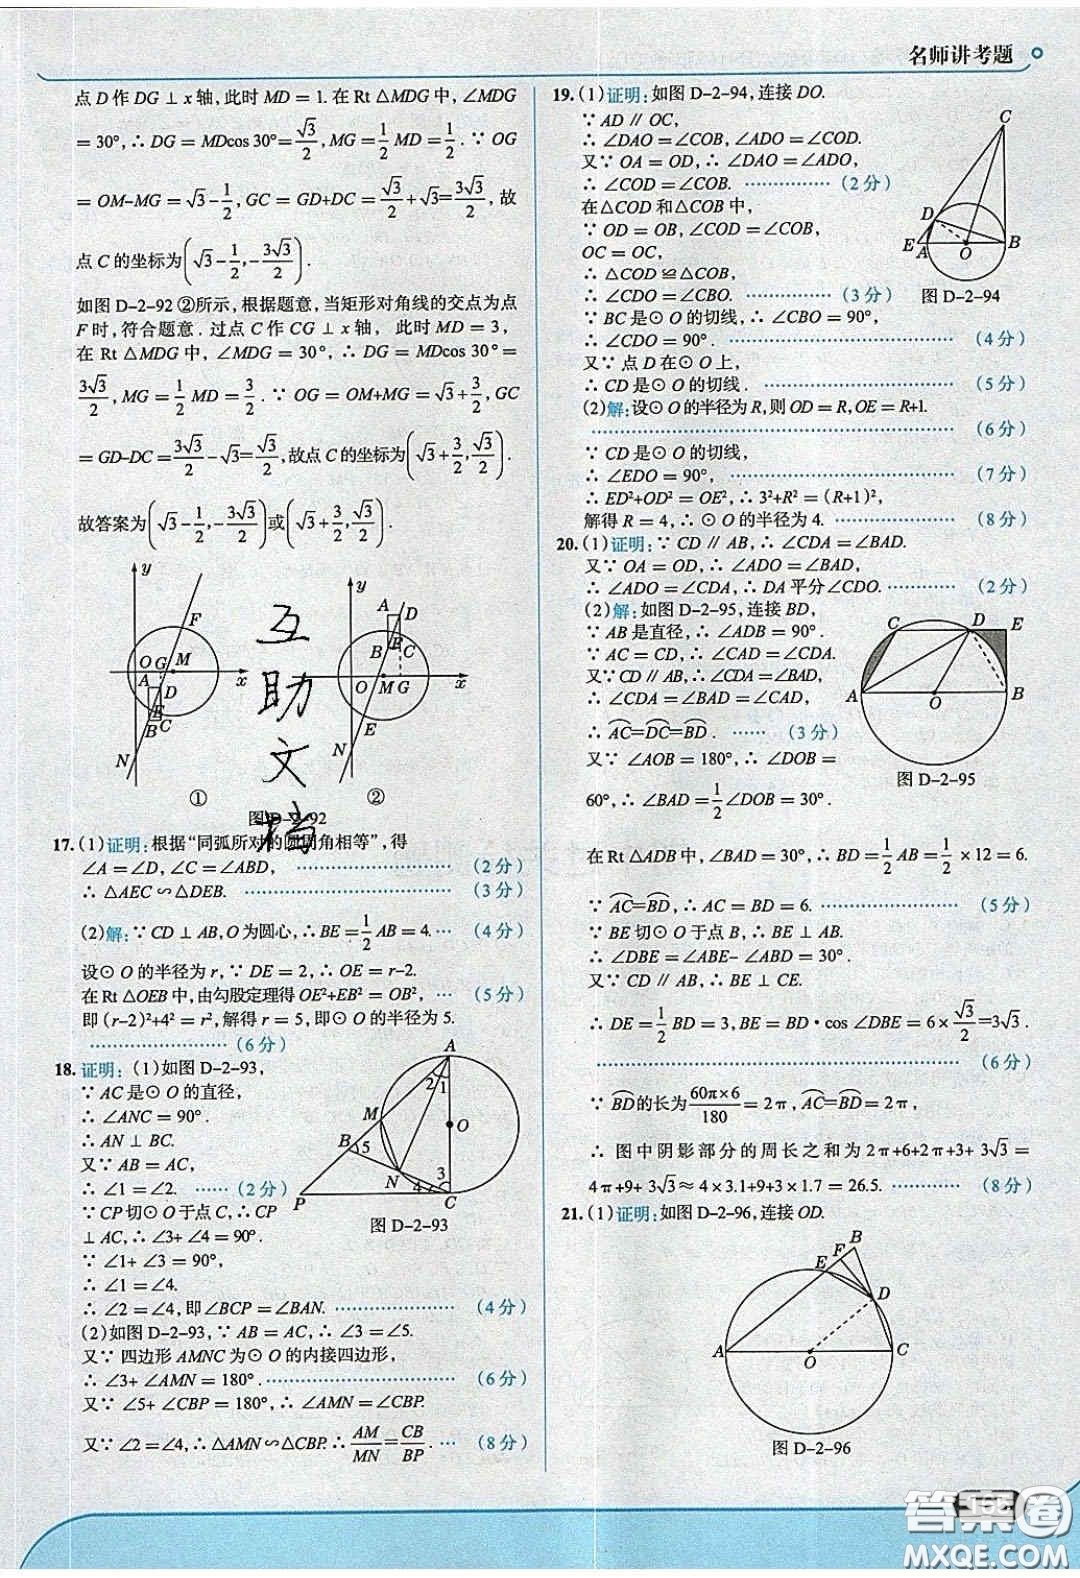 名师讲考题
点 D 作 DG ⊥ x 轴，此时 MD = 1. 在 Rt △MDG 中，∠MDG
= 30°，∴ DG = MDcos 30°=√3/2，MG = 1/2 MD = 1/2. ∵ OG
= OM–MG = √3–1/2，GC = GD+DC = √3/2+√3=3√3/2，故
点 C 的坐标为(√3–1/2，–3√3/2).
如图 D-2-92 ②所示，根据题意，当矩形对角线的交点为点
F 时，符合题意. 过点 C 作 CG ⊥ x 轴， 此时 MD = 3，
在 Rt △MDG 中，∠MDG = 30°，∴ DG = MDcos 30°=
3√3/2，MG = 1/2 MD = 3/2. ∵ OG = OM+MG = √3+3/2，GC
= GD–DC = 3√3/2–√3=√3/2，故点 C 的坐标为(√3+3/2，√3/2).
故答案为(√3–1/2，–3√3/2)或(√3+3/2，√3/2).
y F O G M x A D E B C N ①
y A D B F C O M G x E N ②
图 D-2-92
互助文档
17. (1)证明：根据“同弧所对的圆周角相等”，得
∠A = ∠D，∠C = ∠ABD， ………………… (2分)
∴ △AEC ∽ △DEB. ………………… (3分)
(2)解：∵ CD ⊥ AB，O 为圆心，∴ BE = 1/2 AB = 4. … (4分)
设⊙ O 的半径为 r，∵ DE = 2，∴ OE = r–2.
在 Rt △OEB 中，由勾股定理得 OE²+EB² = OB²， … (5分)
即 (r–2)²+4² = r²，解得 r = 5，即⊙ O 的半径为 5.
………………… (6分)
18. 证明： (1)如图 D-2-93，
∵ AC 是⊙ O 的直径，
∴ ∠ANC = 90°.
∴ AN ⊥ BC.
又∵ AB = AC，
∴ ∠1 = ∠2. …… (2分)
∵ CP 切⊙ O 于点 C，∴ CP
⊥ AC，∴ ∠3+ ∠4 = 90°.
∵ ∠1+ ∠3 = 90°，
∴ ∠1 = ∠4.
∴ ∠2 = ∠4，即∠BCP = ∠BAN. ………………… (4分)
A 2 1 M B 5 O N 3 4 P C
图 D-2-93
(2)如图 D-2-93，∵ AB = AC，∴ ∠3 = ∠5.
又∵ 四边形 AMNC 为⊙ O 的内接四边形，
∴ ∠3+ ∠AMN = 180°. ………………… (6分)
又∵ ∠5+ ∠CBP = 180°，∴ ∠AMN = ∠CBP.
又∵ ∠2 = ∠4，∴ △AMN ∽ △CBP. ∴ AM/MN = CB/BP. … (8分)
19. (1)证明：如图 D-2-94，连接 DO.
∵ AD ∥ OC，
∴ ∠DAO = ∠COB，∠ADO = ∠COD.
又∵ OA = OD，∴ ∠DAO = ∠ADO.
∴ ∠COD = ∠COB. ……………… (2分)
在△COD 和△COB 中，
∵ OD = OB，∠COD = ∠COB，
OC = OC，
∴ △COD ≌ △COB.
∴ ∠CDO = ∠CBO. ……………… (3分)
C D E A O B
图 D-2-94
∵ BC 是⊙ O 的切线，∴ ∠CBO = 90°，
∴ ∠CDO = 90°. ………………… (4分)
又∵ 点 D 在⊙ O 上，
∴ CD 是⊙ O 的切线. ………………… (5分)
(2)解：设⊙ O 的半径为 R，则 OD = R，OE = R+1.
………………… (6分)
∵ CD 是⊙ O 的切线，
∴ ∠EDO = 90°， ………………… (7分)
∴ ED²+OD² = OE²，∴ 3²+R² = (R+1)²，
解得 R = 4，∴ ⊙ O 的半径为 4. ………………… (8分)
20. (1)证明：∵ CD ∥ AB，∴ ∠CDA = ∠BAD.
又∵ OA = OD，∴ ∠ADO = ∠BAD，
∴ ∠ADO = ∠CDA，∴ DA 平分∠CDO. ………… (2分)
(2)解：如图 D-2-95，连接 BD，
∵ AB 是直径，∴ ∠ADB = 90°.
∵ AC = CD，∴ ∠CAD = ∠CDA.
又∵ CD ∥ AB，∴ ∠CDA = ∠BAD，
∴ ∠CDA = ∠BAD = ∠CAD，
∴ A͡C=D͡C=B͡D . …… (3分)
又∵ ∠AOB = 180°，∴ ∠DOB =
60°，∴ ∠BAD = 1/2 ∠DOB = 30°.
C D E A O B
图 D-2-95
在 Rt △ADB 中，∠BAD = 30°，∴ BD = 1/2 AB = 1/2 × 12 = 6.
∵ A͡C=B͡D，∴ AC = BD = 6. ………………… (5分)
∵ BE 切⊙ O 于点 B，∴ BE ⊥ AB.
∴ ∠DBE = ∠ABE– ∠ABD = 30°.
又∵ CD ∥ AB，∴ BE ⊥ CE.
∴ DE = 1/2 BD = 3，BE = BD·cos ∠DBE = 6×√3/2=3√3.
………………… (6分)
∵ B͡D的长为 60π×6/180 = 2π，A͡C=B͡D = 2π，
∴ 图中阴影部分的周长之和为 2π+6+2π+3+ 3√3 =
4π+9+ 3√3 ≈ 4×3.1+9+3×1.7 = 26.5. ………… (8分)
21. (1)证明：如图 D-2-96，连接 OD.
B F E D A O C
图 D-2-96
答案圈
MXQE.COM